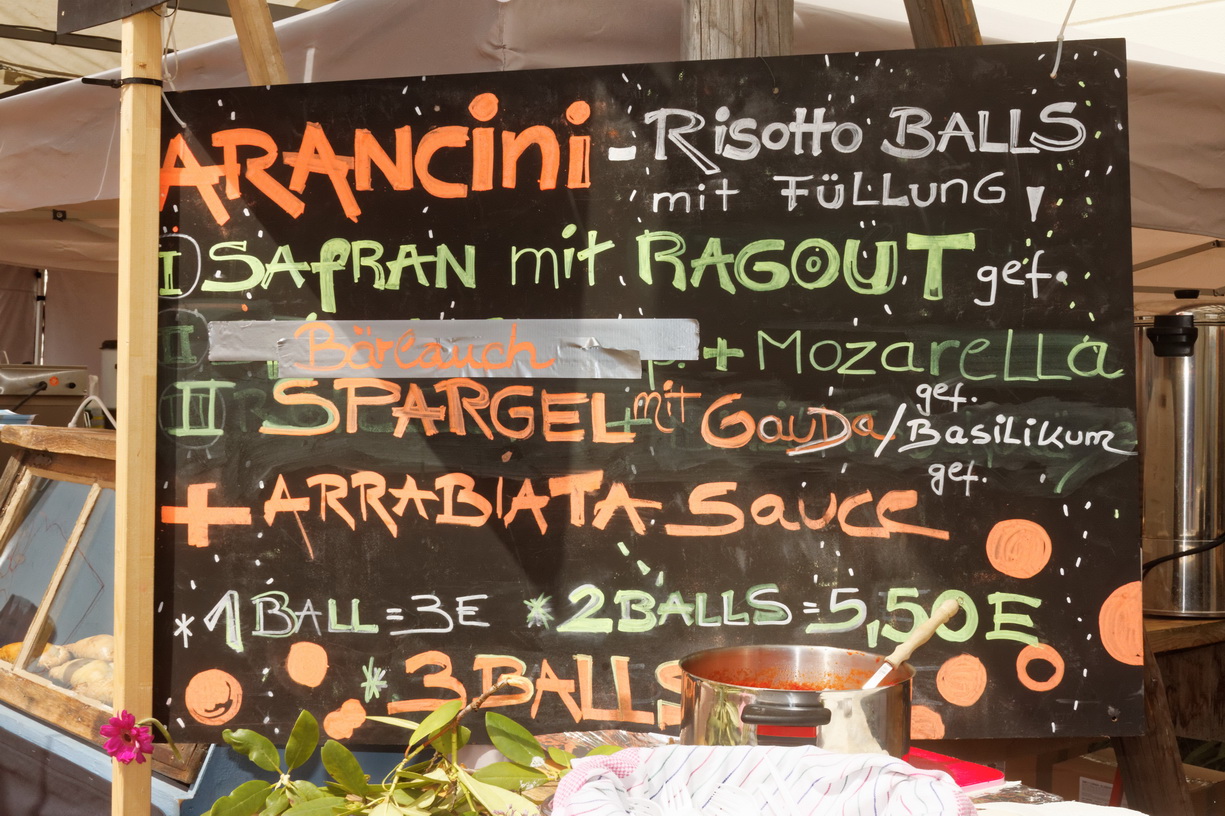 ARANCini - Risotto BALLS
mit FÜLLUNG !
I) SAfRAN mit RAGOUT gef.
II Bärlauch p. + MozareLLa
II SPARGEL mit GauDa gef. / BasiLiKum gef.
+ ARRABIATA Sauce
* 1 BALL = 3E * 2 BALLS = 5,50 E
* 3 BALLS